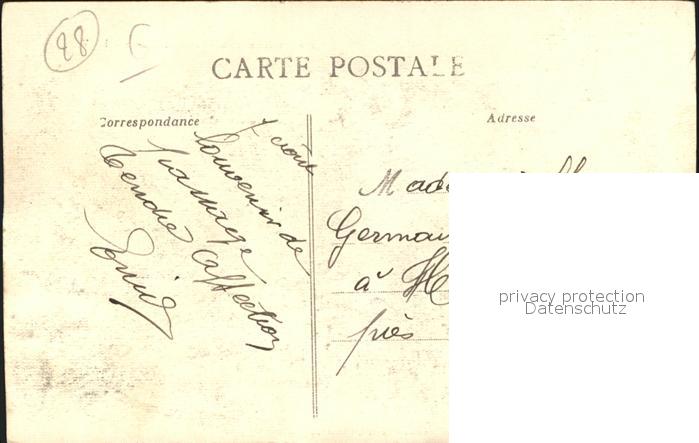 28
CARTE POSTALE
Correspondance
Adresse
7 août
Souvenir de
passage
Tendre Affection
Made
Germai
à H
près
privacy protection
Datenschutz